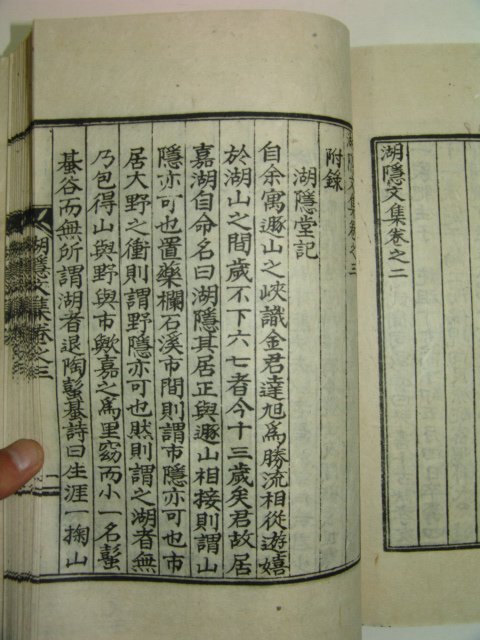 湖隱文集卷之二
湖隱文集卷之三
附錄
湖隱堂記
自余寓遯山之峽識金君達旭爲勝流相從遊嬉
於湖山之間歲不下六七者今十三歲矣君故居
嘉湖自命名曰湖隱其居正與遯山相接則謂山
隱亦可也置藥欄石溪市間則謂市隱亦可也市
居大野之衝則謂野隱亦可也然則謂之湖者無
乃包得山與野與市歟嘉之爲里窈而小一名蟿
蟇谷而無所謂湖者退陶蟿蟇詩曰生涯一掬山
湖隱文集卷之三